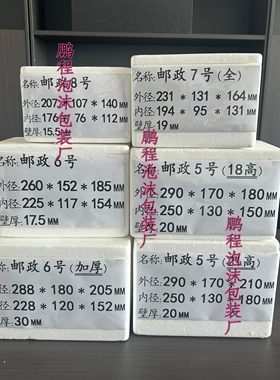 名称:邮政8号
外径:207*107*140MM
内径:176*76*112MM
壁厚:15.5
名称:邮政7号(全)
外径:231*131*164MM
内径:194*95*131MM
壁厚:19MM
名称:邮政6号
外径:260*152*185MM
内径:225*117*154MM
壁厚:17.5MM
名称:邮政5号(18高)
外径:290*170*180MM
内径:250*130*150MM
壁厚:20MM
名称:邮政6号(加厚)
外径:288*180*205MM
内径:228*120*152MM
壁厚:30MM
名称:邮政5号
外径:290*170*210MM
内径:250*130*180MM
壁厚:20MM
鹏程泡沫包装厂
鹏程泡沫包装厂